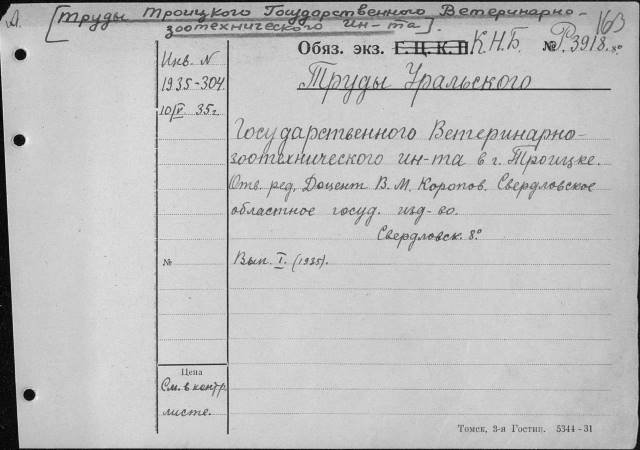 А. [Труды Троицкого Государственного Ветеринарно-
зоотехнического ин-та].
163
Обяз. экз. Г.Ц.К.П К.Н.Б. № Р.3918. 8°
Инв. N
1935-304.
10/V 35г.
Труды Уральского
Государственного Ветеринарно-
зоотехнического ин-та в г. Троицке.
Отв. ред. Доцент В. М. Коропов. Свердловское
областное госуд. изд-во.
Свердловск. 8°
№
Вып. I. (1935).
Цена
См. в контр.
листе.
Томск, 3-я Гостип. 5344-31